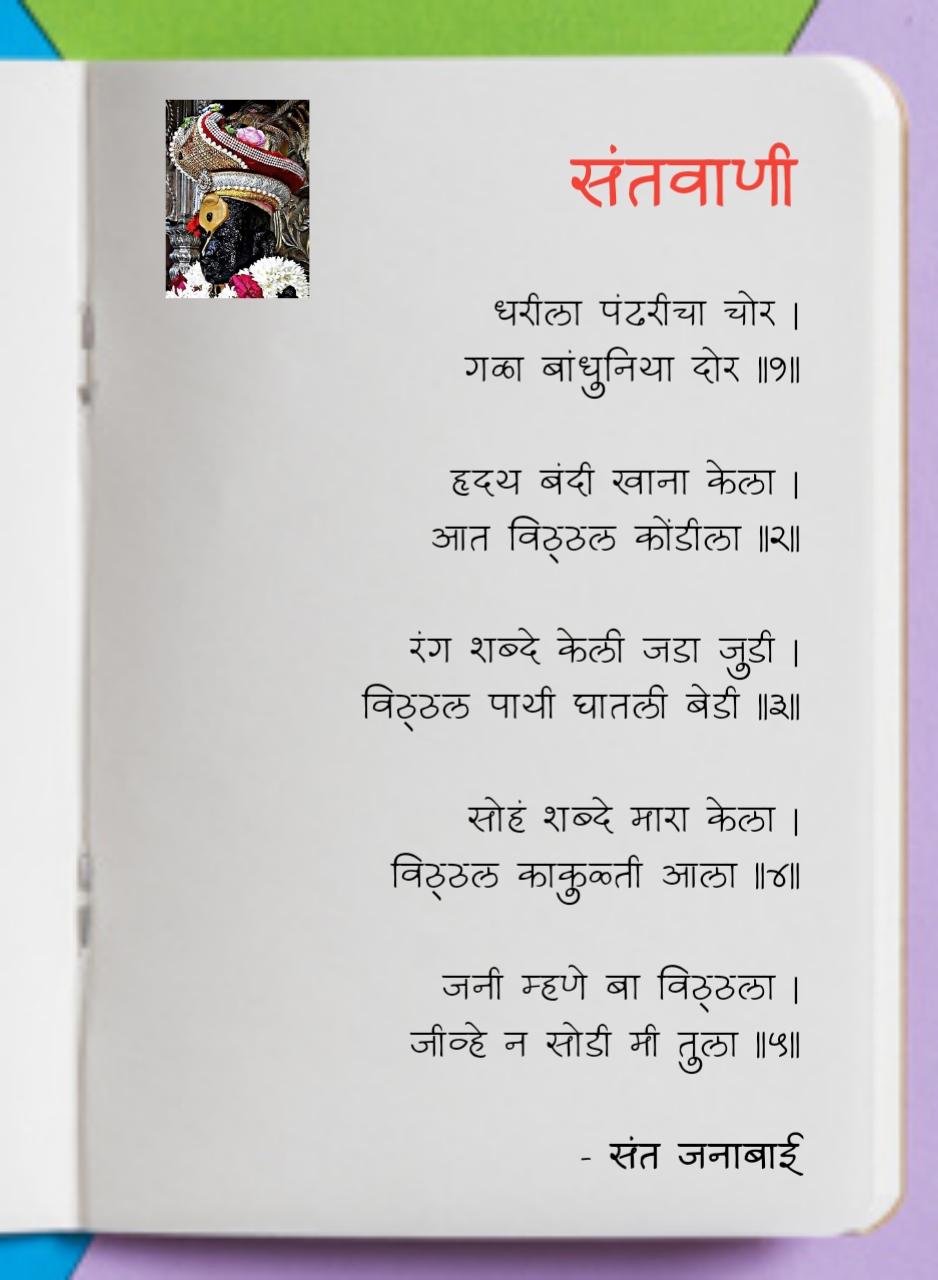 संतवाणी
धरीला पंढरीचा चोर ।
गळा बांधुनिया दोर ॥१॥
हृदय बंदी खाना केला ।
आत विठ्ठल कोंडीला ॥२॥
रंग शब्दे केली जडा जुडी ।
विठ्ठल पायी घातली बेडी ॥३॥
सोहं शब्दे मारा केला ।
विठ्ठल काकुळ्ती आला ॥४॥
जनी म्हणे बा विठ्ठला ।
जीव्हे न सोडी मी तुला ॥५॥
- संत जनाबाई